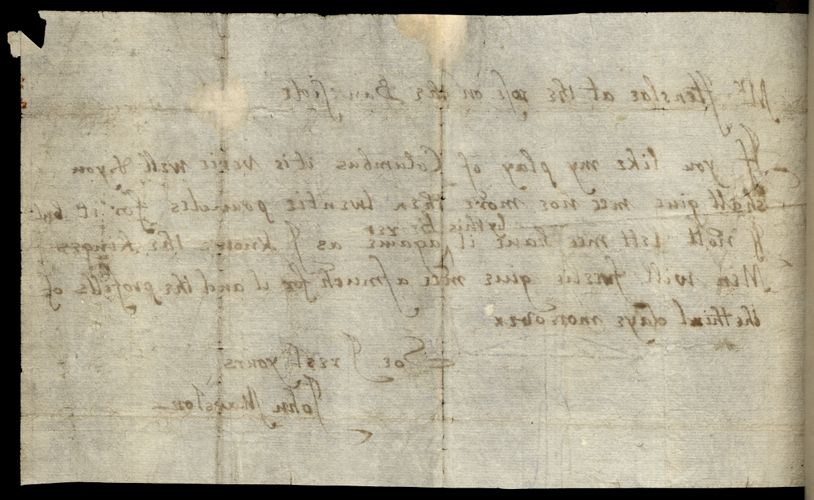 Mr Henslae at the rose on the Bankside
If you like my play of Columbus it is verie well & you
shall giue mee noe more then twentie poundes for it but
If nott lett mee haue it by this bearer againe as I knowe the kinges
Men will freelie giue mee as much for it and the profitts of
the third daye moreouer
Soe I rest yours
John Marston